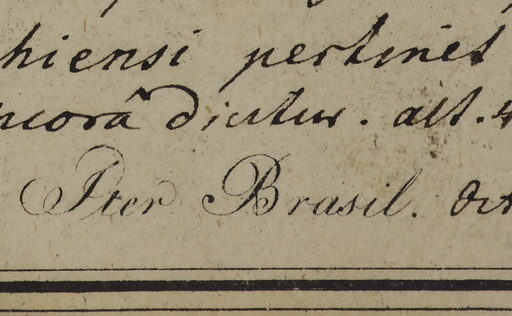 hiensi pertinet
ncorâ dicitur. alt. 4
Iter Brasil. Oct